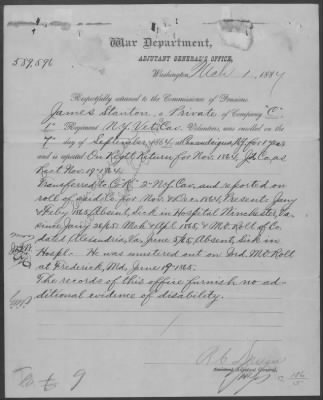 War Department,
ADJUTANT GENERAL'S OFFICE,
539,596
Washington, Mch 1, 1887
Respectfully returned to the Commissioner of Pensions.
James Stanton, a Private of Company "C",
1" Regiment N.Y. Vet. Cav. Volunteers, was enrolled on the
7" day of September, 1864, at Canandaigua N.Y. for 1 year
and is reported On Right Return for Nov. 1864, as
Rect Nov. 19" 1864.
Transferred to Co K" 2" N.Y. Cav. and reported on
roll of said Co. for Nov. & Dec. 1864, Present; Jany
& Feby 1865, Absent, Sick in Hospital Winchester, Va.
since Jany 26/65. Mch & Apl 1865 & M.O. Roll of Co.
dated Alexandria, Va. June 5/65, Absent, Sick in
Hospl. He was mustered out on Ind. M.O. Roll
at Frederick, Md., June 19" 1865.
The records of this office furnish no ad-
ditional evidence of disability.
Assistant Adjutant General.
9